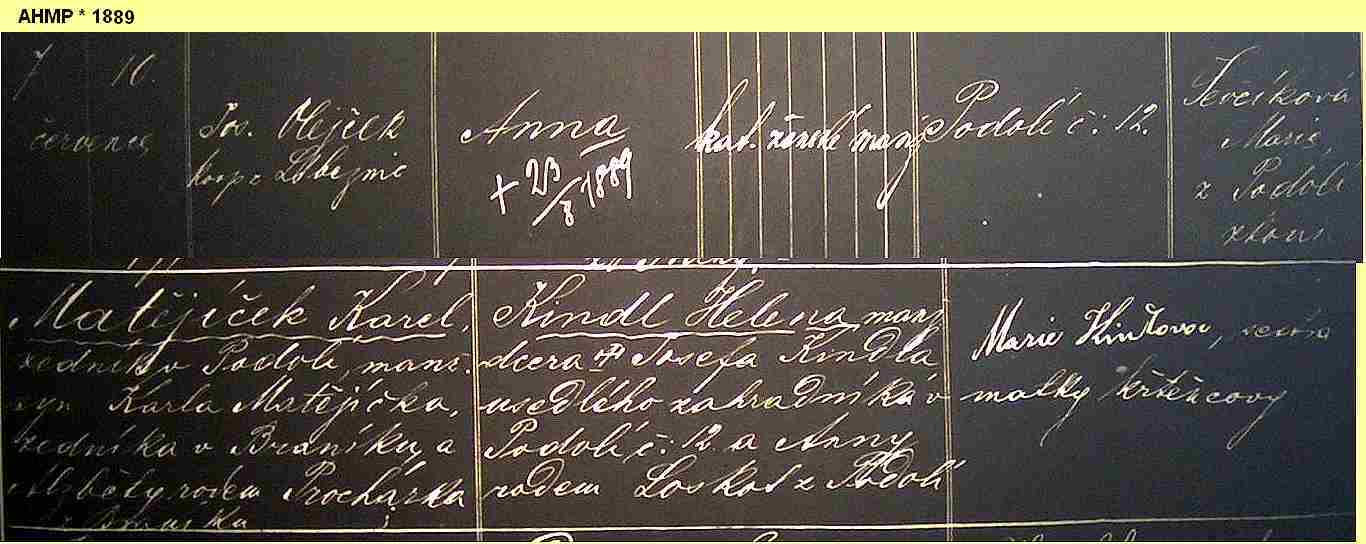 AHMP * 1889
7 10.
červenec
Jos. Olejček
koop z
Anna
+ 23/8 1889
kat. ženské manž
Podolí č: 12.
Ševčíková
Marie,
z Podolí
zkouš.
Matějíček Karel,
zedník v Podolí, manž.
syn Karla Matějíčka,
zedníka v Braníku, a
Alžběty, rodem Procházka
z Braníka
Kindl Helena, manž
dcera Josefa Kindla
usedlého zahradníka v
Podolí č: 12. a Anny
rodem Loskot z Podolí
Marie, sestra
matky křtěncovy